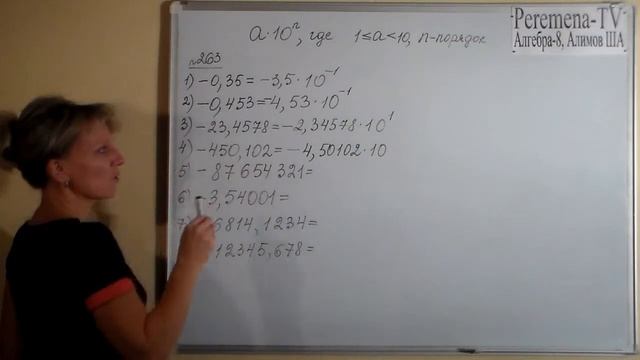 a·10ⁿ, где 1≤a<10, n-порядок
Peremena-TV
Алгебра-8, Алимов ША
№263
1) −0,35=−3,5·10⁻¹
2) −0,453=−4,53·10⁻¹
3) −23,4578=−2,34578·10¹
4) −450,102=−4,50102·10
5) −87654321=
6) −3,54001=
7) 6814,1234=
12345,678=